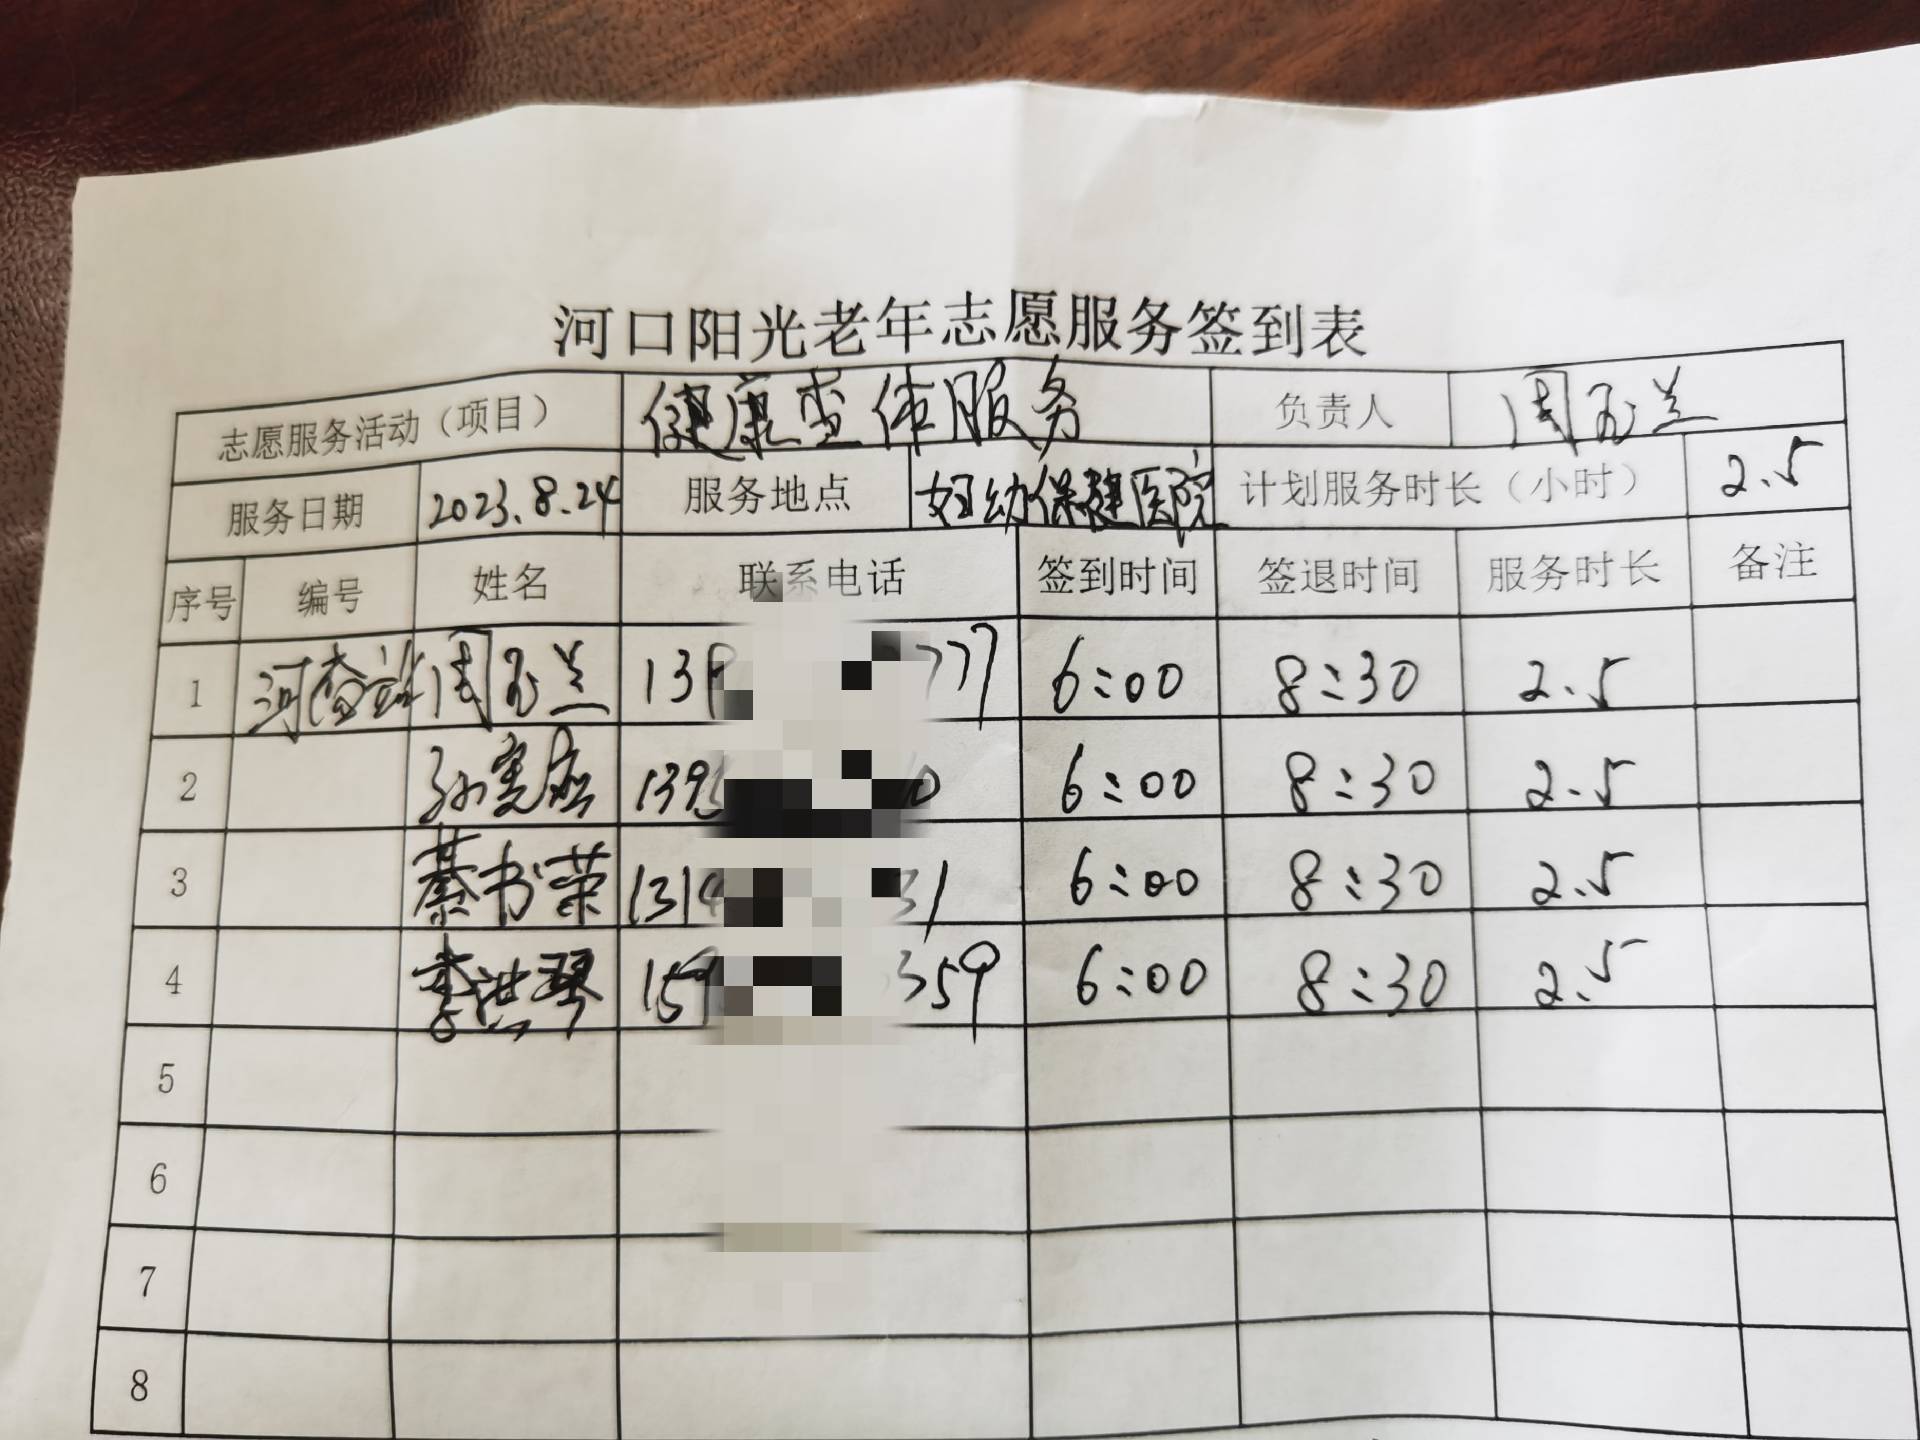 河口阳光老年志愿服务签到表
志愿服务活动（项目） 健康查体服务 负责人 周玉兰
服务日期 2023.8.24 服务地点 妇幼保健医院 计划服务时长（小时） 2.5
序号 编号 姓名 联系电话 签到时间 签退时间 服务时长 备注
1 周玉兰 13 777 6:00 8:30 2.5
2 139 0 6:00 8:30 2.5
3 綦书荣 1314 31 6:00 8:30 2.5
4 李洪琴 159 359 6:00 8:30 2.5
5
6
7
8